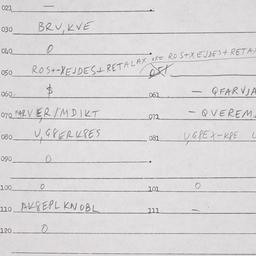 021 —
030 BRV,KVE
040 0
050 ROS+-XEJDES+RETALAX ROS+XEJDES+RETA
060 $ 061 — QFARVJA
070 VER/MDIKT 071 — QVEREM
080 V,GPERKPES 081 V,GPEX-KPE
090 0
100 0 101 0
110 AKPEPLKNOBL 111 —
120 0